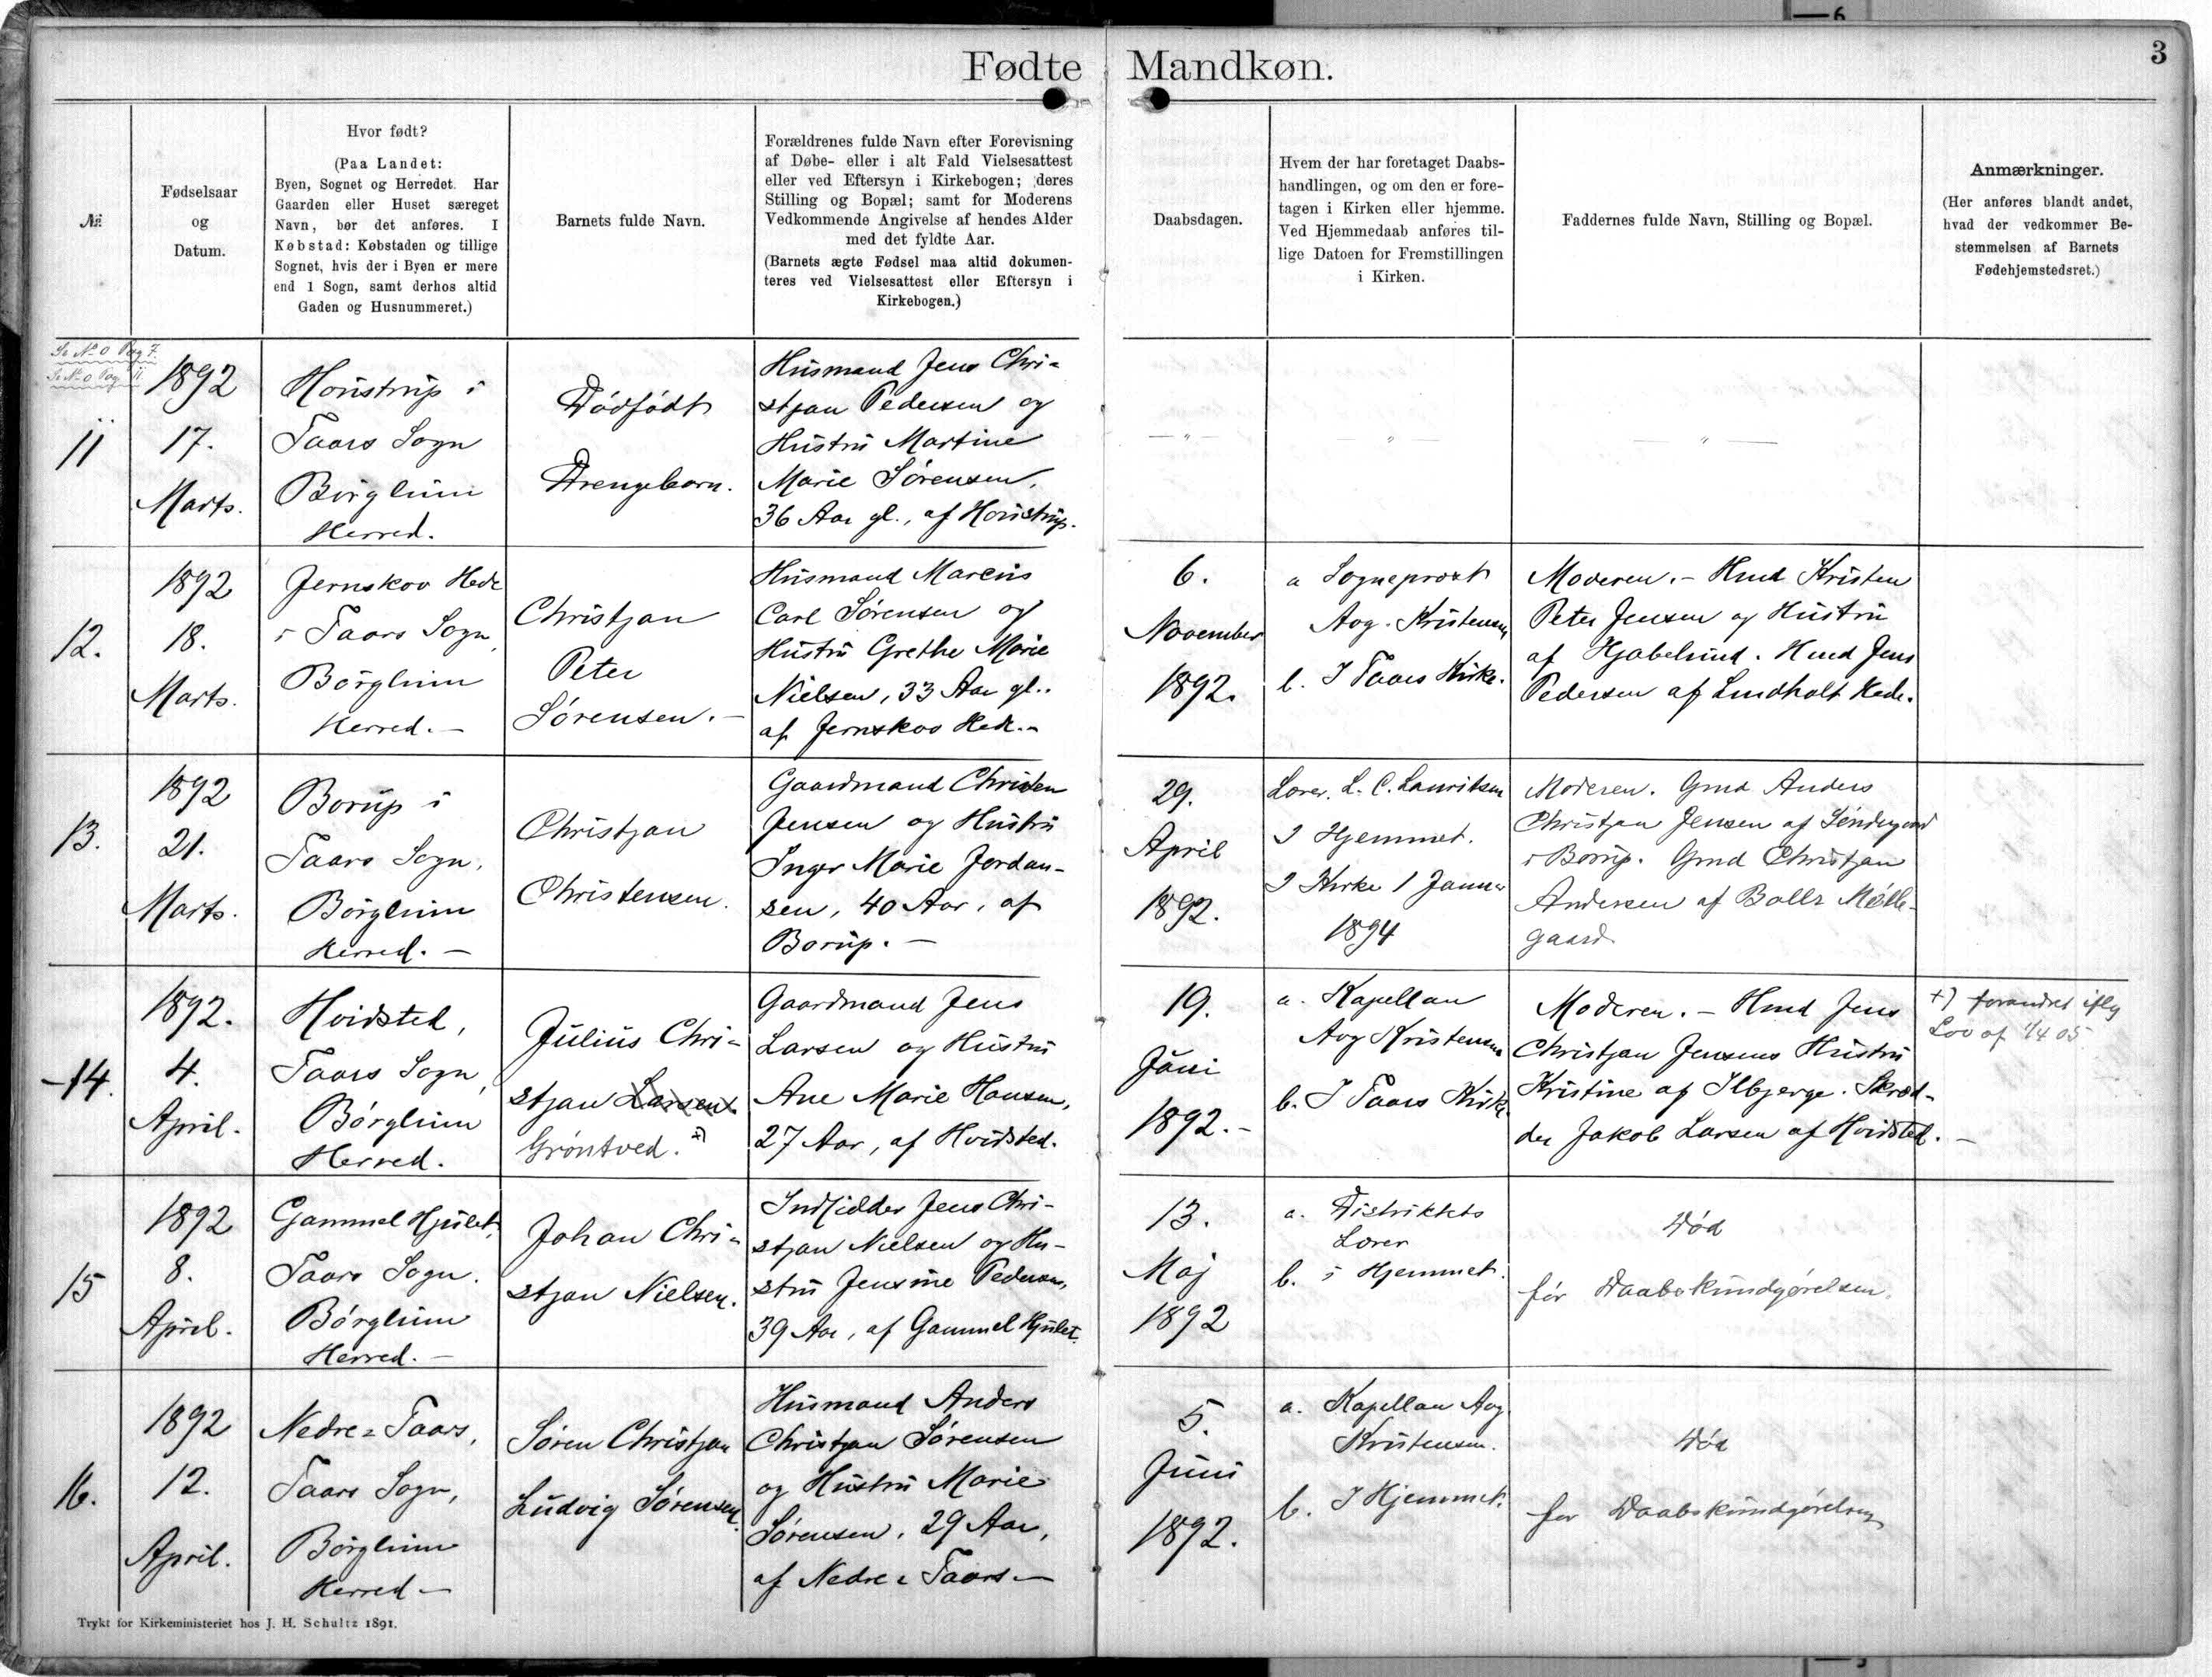 Fødte Mandkøn.
3
№
Fødselsaar
og
Datum.
Hvor født?
(Paa Landet:
Byen, Sognet og Herredet. Har
Gaarden eller Huset særeget
Navn, bør det anføres. I
Købstad: Købstaden og tillige
Sognet, hvis der i Byen er mere
end 1 Sogn, samt derhos altid
Gaden og Husnummeret.)
Barnets fulde Navn.
Forældrenes fulde Navn efter Forevisning
af Døbe- eller i alt Fald Vielsesattest
eller ved Eftersyn i Kirkebogen; deres
Stilling og Bopæl; samt for Moderens
Vedkommende Angivelse af hendes Alder
med det fyldte Aar.
(Barnets ægte Fødsel maa altid dokumen-
teres ved Vielsesattest eller Eftersyn i
Kirkebogen.)
Daabsdagen.
Hvem der har foretaget Daabs-
handlingen, og om den er fore-
tagen i Kirken eller hjemme.
Ved Hjemmedaab anføres til-
lige Datoen for Fremstillingen
i Kirken.
Faddernes fulde Navn, Stilling og Bopæl.
Anmærkninger.
(Her anføres blandt andet,
hvad der vedkommer Be-
stemmelsen af Barnets
Fødehjemstedsret.)
Se No 0 Pag 7.
Se No 0 Pag 11.
11
1892
17.
Marts.
Houstrup i
Taars Sogn
Börglum
Herred.
Dödfödt
Drengebarn.
Husmand Jens Chri-
stjan Pedersen og
Hustru Martine
Marie Sörensen,
36 Aar gl., af Houstrup.
— " —
— " —
— " —
12.
1892
18.
Marts.
Jernskov Hede
i Taars Sogn,
Börglum
Herred. —
Christjan
Peter
Sörensen. —
Husmand Marcus
Carl Sörensen og
Hustru Grethe Marie
Nielsen, 33 Aar gl.,
af Jernskov Hede. -
6.
November
1892.
a Sogneprest
Aug. Kristensen
b. I Taars Kirke.
Moderen. - Hmd Kristen
Peter Jensen og Hustru
af Hjabelund. Hmd Jens
Pedersen af Lindholt Hede.
13.
1892
21.
Marts.
Borup i
Taars Sogn,
Börglum
Herred. —
Christjan
Christensen.
Gaardmand Christen
Jensen og Hustru
Inger Marie Jordan-
sen, 40 Aar, af
Borup. —
29.
April
1892.
Lærer. L. C. Lauritsen
I Hjemmet.
I Kirke 1 Januar
1894
Moderen. Gmd Anders
Christjan Jensen af Söndergaard
i Borup. Gmd Christjan
Andersen af Bolls Mölle-
gaard.
-14.
1892.
4.
April.
Hvidsted,
Taars Sogn,
Börglum
Herred.
Julius Chri-
stjan Larsen
Gröntved. +)
Gaardmand Jens
Larsen og Hustru
Ane Marie Hansen,
27 Aar, af Hvidsted.
19.
Juni
1892. -
a. Kapellan
Aug Kristensen
b. I Taars Kirke
Moderen. - Hmd Jens
Christjan Jensens Hustru
Kristine af Ilbjerge. Skræd-
der Jakob Larsen af Hvidsted. —
+) forandret iflg
Lov af 1/4 05
15
1892
8.
April.
Gammel Hjulet,
Taars Sogn.
Börglum
Herred. —
Johan Chri-
stjan Nielsen.
Indsidder Jens Chri-
stjan Nielsen og Hu-
stru Jensine Pedersen,
39 Aar, af Gammel Hjulet.
13.
Maj
1892
a. Distriktets
Lærer
b. i Hjemmet.
Död
för Daabskundgörelsen.
16.
1892
12.
April.
Nedre-Taars,
Taars Sogn,
Börglum
Herred —
Sören Christjan
Ludvig Sörensen.
Husmand Anders
Christjan Sörensen
og Hustru Marie
Sörensen, 29 Aar,
af Nedre-Taars —
5.
Juni
1892.
a. Kapellan Aug
Kristensen.
b. I Hjemmet.
Död
för Daabskundgörelsen
Trykt for Kirkeministeriet hos J. H. Schultz 1891.